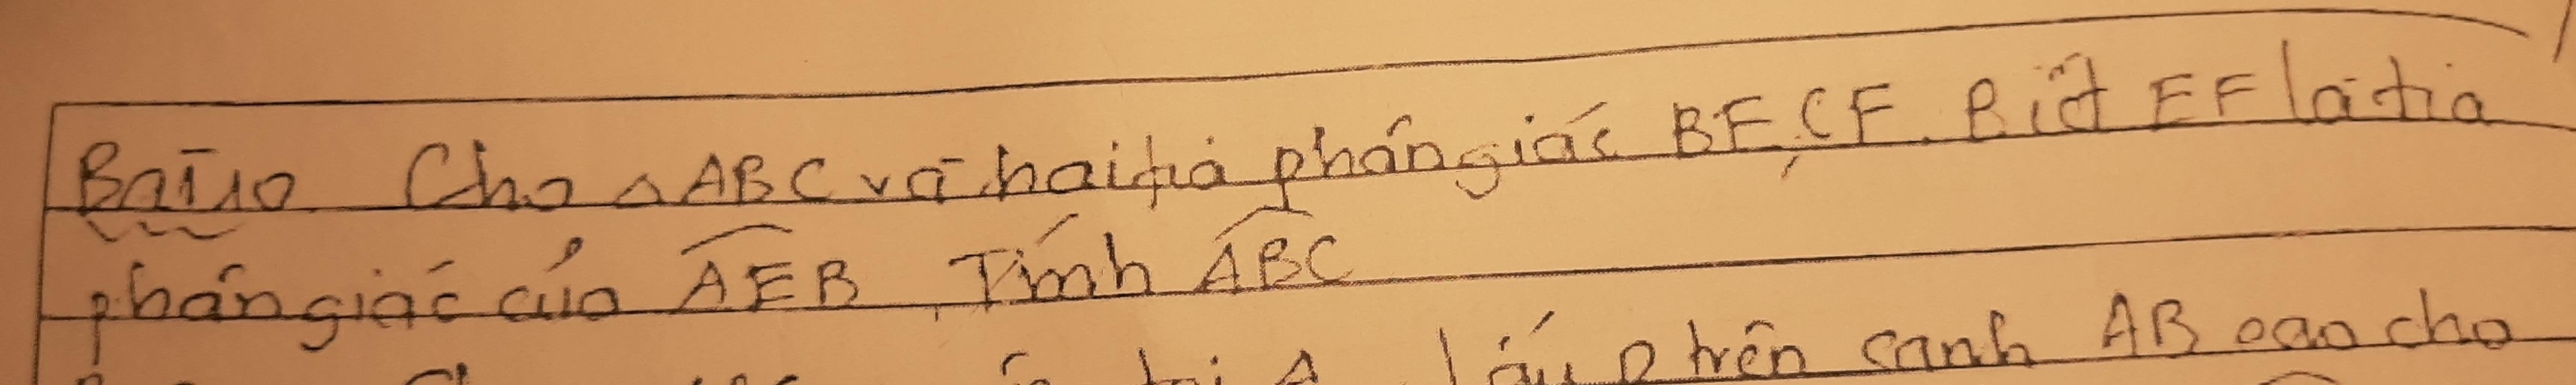 Bài 10 Cho △ABC và hai tia phân giác BE, CF. Biết EF là tia
phân giác của AEB. Tính ABC
lấy D trên cạnh AB sao cho